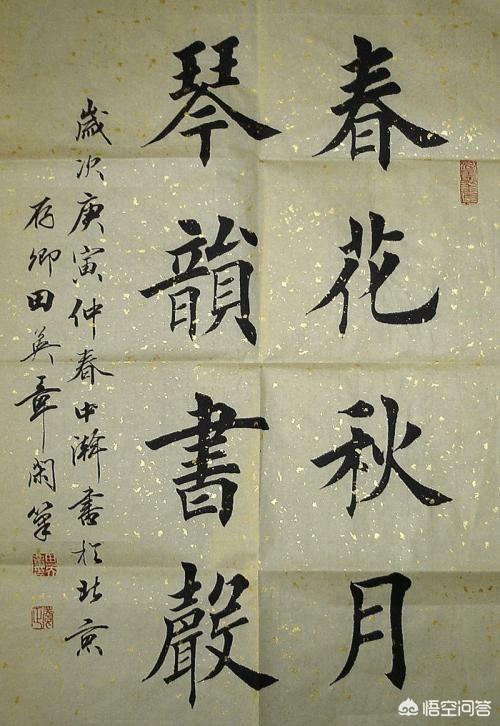 春花秋月
琴韻書聲
歲次庚寅仲春中澣書於北京
存卿田英章閑筆
悟空问答